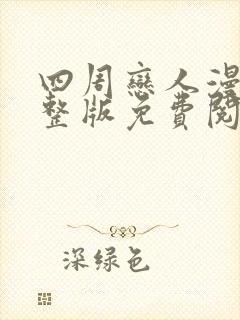 四周戀人漫
整版免費閱
深绿色